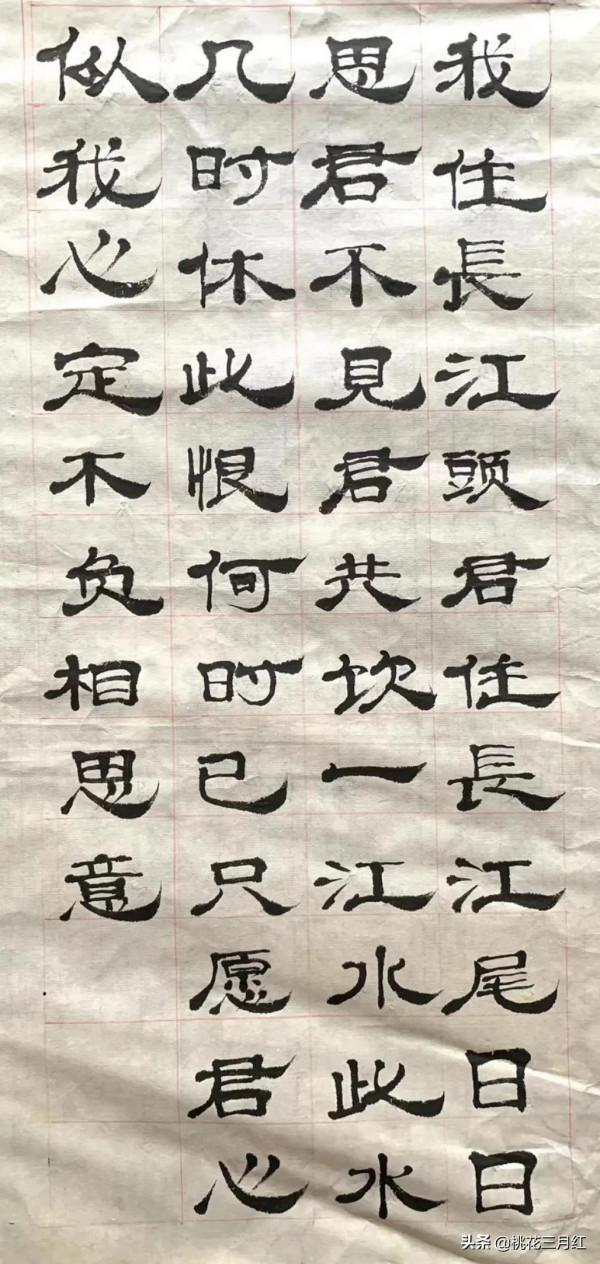 我住長江頭君住長江尾日日
思君不見君共饮一江水此水
几时休此恨何时已只愿君心
似我心定不负相思意
头条 @桃花三月红